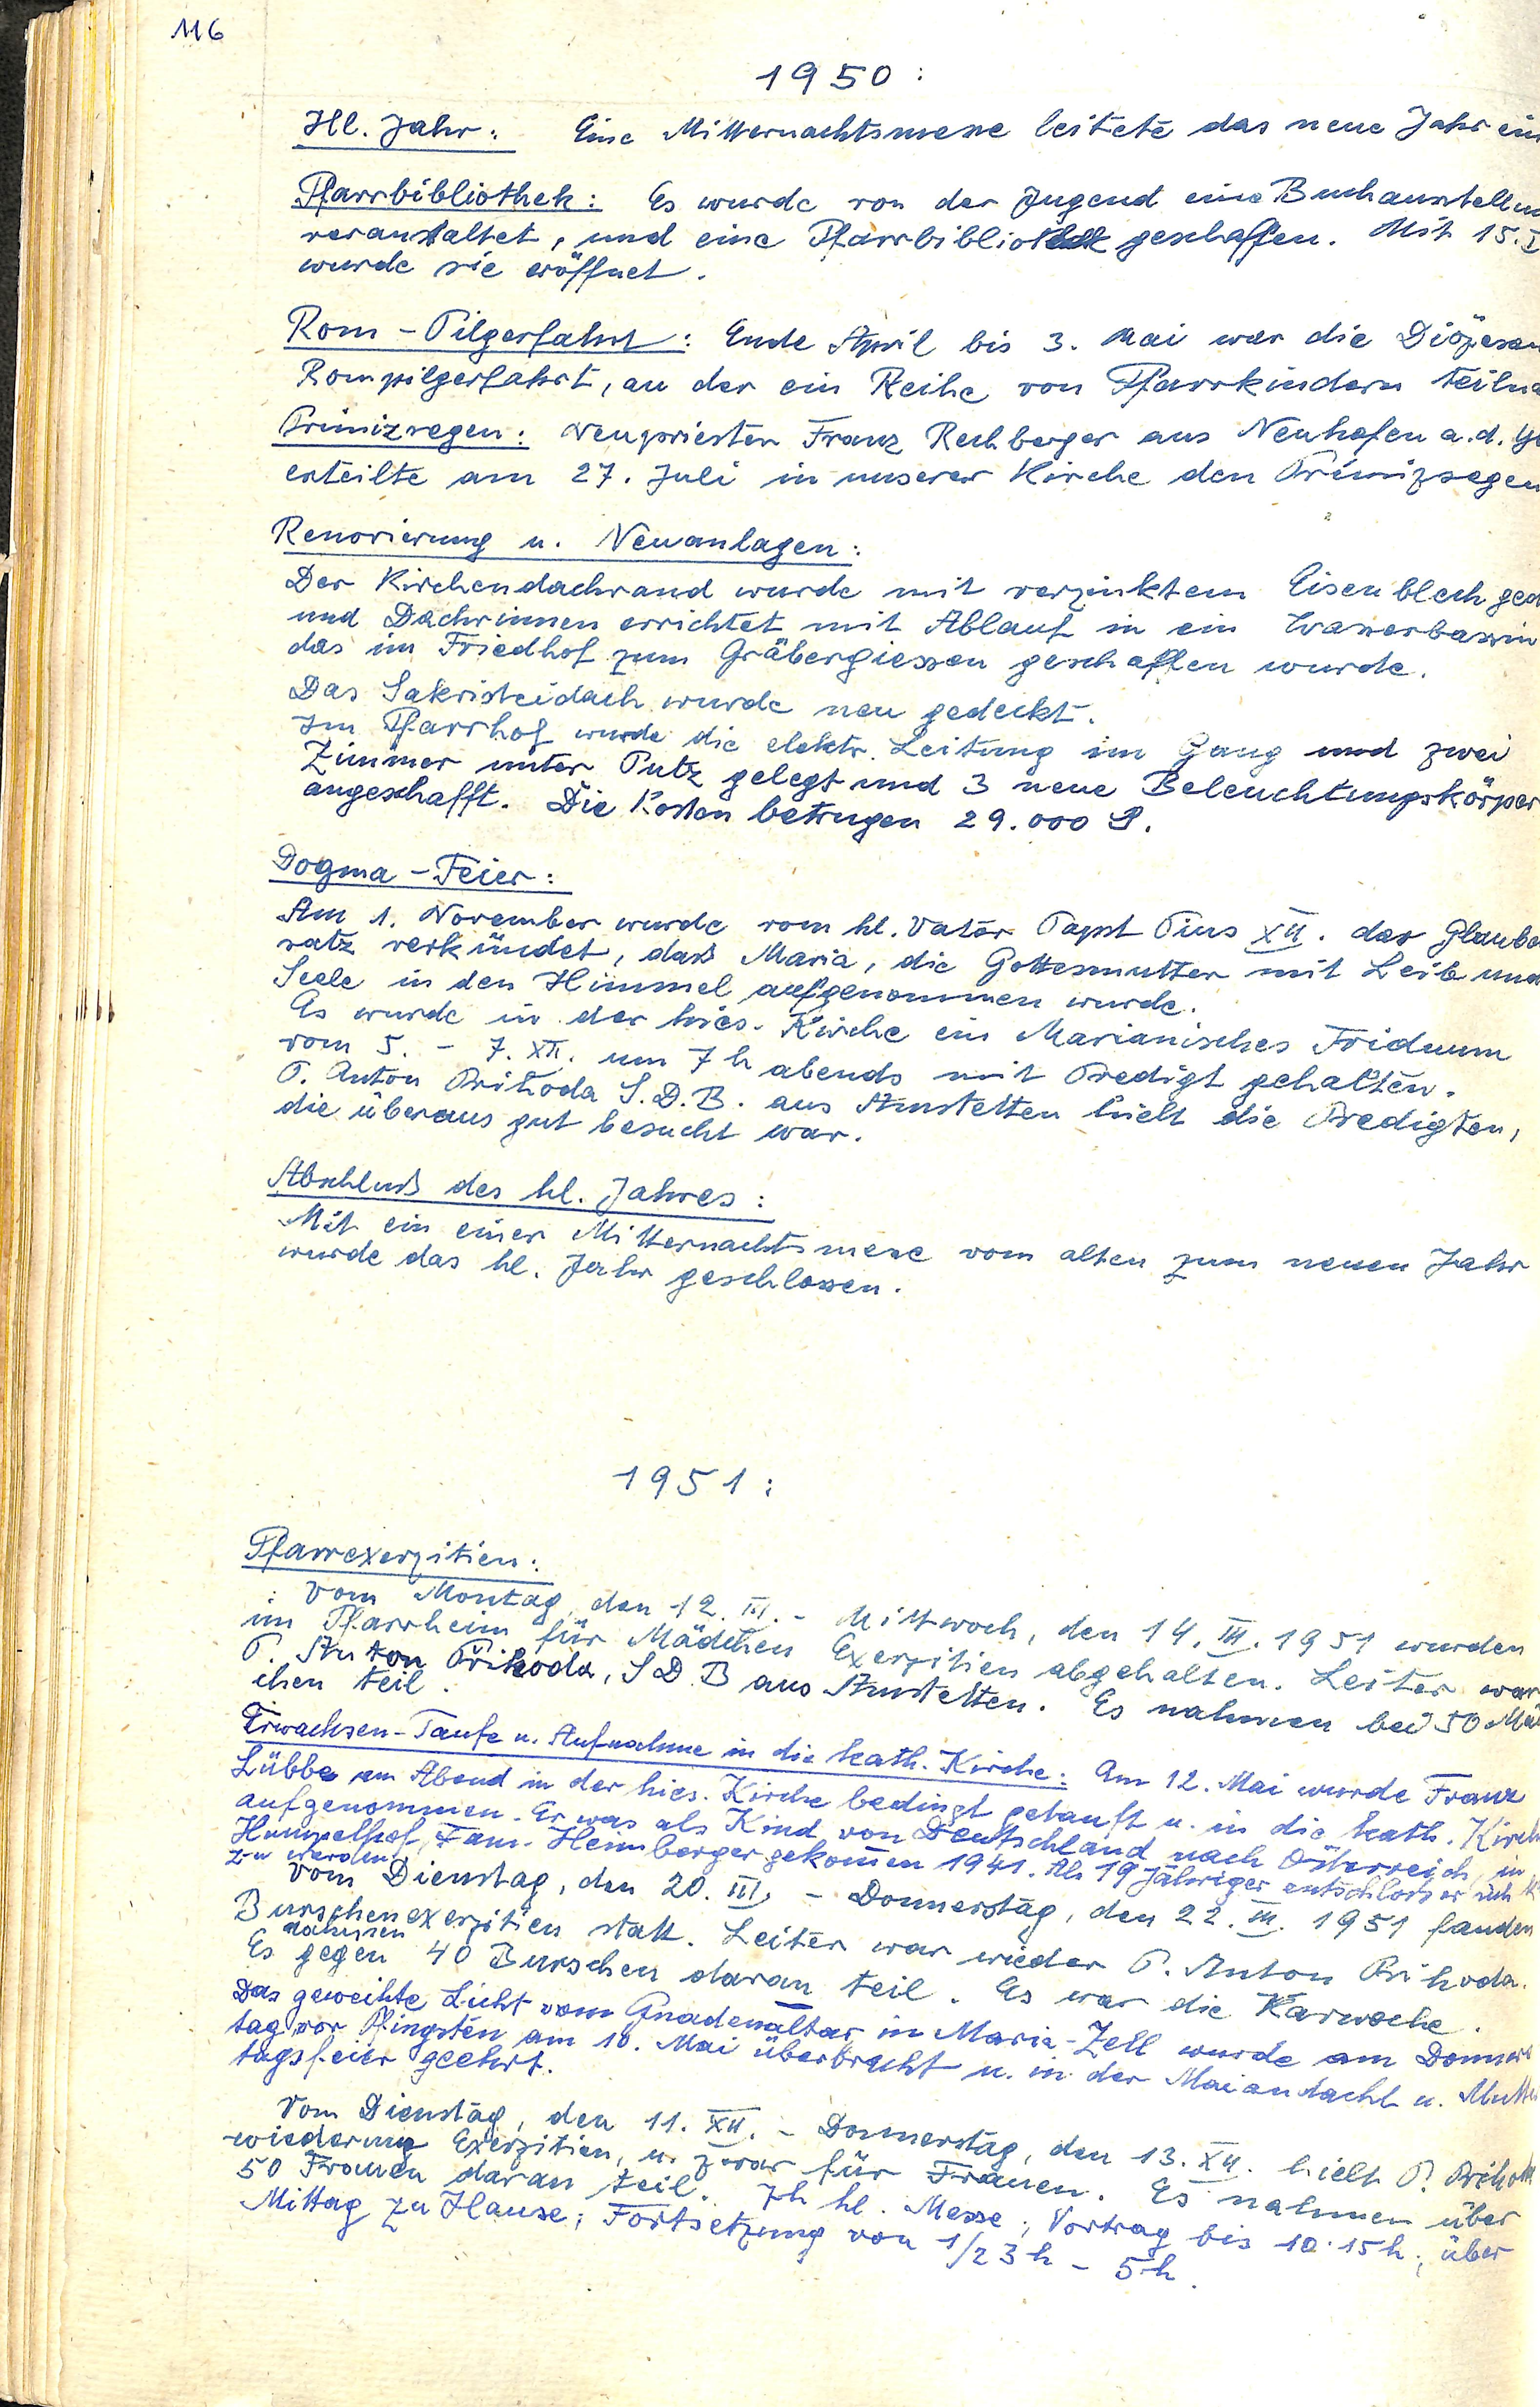 116
1950:
Hl. Jahr: Eine Mitternachtsmesse leitete das neue Jahr ein
Pfarrbibliothek: Es wurde von der Jugend eine Buchausstellun
veranstaltet, und eine Pfarrbibliothek geschaffen. Mit 15. I
wurde sie eröffnet.
Rom-Pilgerfahrt: Ende April bis 3. Mai war die Diözesan
Rompilgerfahrt, an der ein Reihe von Pfarrkindern teilna
Primizsegen: Neupriester Franz Rechberger aus Neuhofen a. d. Y
erteilte am 27. Juli in unserer Kirche den Primizsegen
Renovierung u. Neuanlagen:
Der Kirchendachrand wurde mit verzinktem Eisenblech ged
und Dachrinnen errichtet mit Ablauf in ein Wasserbassin
das im Friedhof zum Gräbergiessen geschaffen wurde.
Das Sakristeidach wurde neu gedeckt.
Im Pfarrhof wurde die elektr. Leitung im Gang und zwei
Zimmer unter Putz gelegt und 3 neue Beleuchtungskörper
angeschafft. Die Kosten betrugen 29.000 S.
Dogma-Feier:
Am 1. November wurde vom hl. Vater Papst Pius XII. der Glaube
satz verkündet, daß Maria, die Gottesmutter mit Leib und
Seele in den Himmel aufgenommen wurde.
Es wurde in der hies. Kirche ein Marianisches Triduum
vom 5. - 7. XII. um 7 h abends mit Predigt gehalten.
P. Anton Prihoda S. D. B. aus Amstetten hielt die Predigten,
die überaus gut besucht war.
Abschluß des hl. Jahres:
Mit ein einer Mitternachtsmesse vom alten zum neuen Jahr
wurde das hl. Jahr geschlossen.
1951:
Pfarrexerzitien:
: Vom Montag, den 12. III. - Mittwoch, den 14. III. 1951 wurden
im Pfarrheim für Mädchen Exerzitien abgehalten. Leiter war
P. Anton Přikoda, S D. B aus Amstetten. Es nahmen bei 50 Mäd
chen teil.
Erwachsen-Taufe u. Aufnahme in die kath. Kirche: Am 12. Mai wurde Franz
Lübbe am Abend in der hies. Kirche bedingt getauft u. in die kath. Kirch
aufgenommen. Er was als Kind von Deutschland nach Österreich, in
Fam. Heimberger gekommen 1941. Als 19 Jähriger entschloss er sich
zu werden
Vom Dienstag, den 20. III. - Donnerstag, den 22. III. 1951 fanden
Burschenexerzitien statt. Leiter war wieder P. Anton Prihoda.
nahmen
Es gegen 40 Burschen daran teil. Es war die Karwoche.
Das geweihte Licht vom Gnadenaltar in Maria-Zell wurde am Donners
tag vor Pfingsten am 10. Mai überbracht u. in der Maiandacht u. Mutter
tagsfeier geehrt.
Vom Dienstag, den 11. XII. - Donnerstag, den 13. XII. hielt P. Prihoda
wiederum Exerzitien, u. zwar für Frauen. Es nahmen über
50 Frauen daran teil. 7h hl. Messe, Vortrag bis 10.15h; über
Mittag zu Hause; Fortsetzung von 1/2 3 h - 5 h.